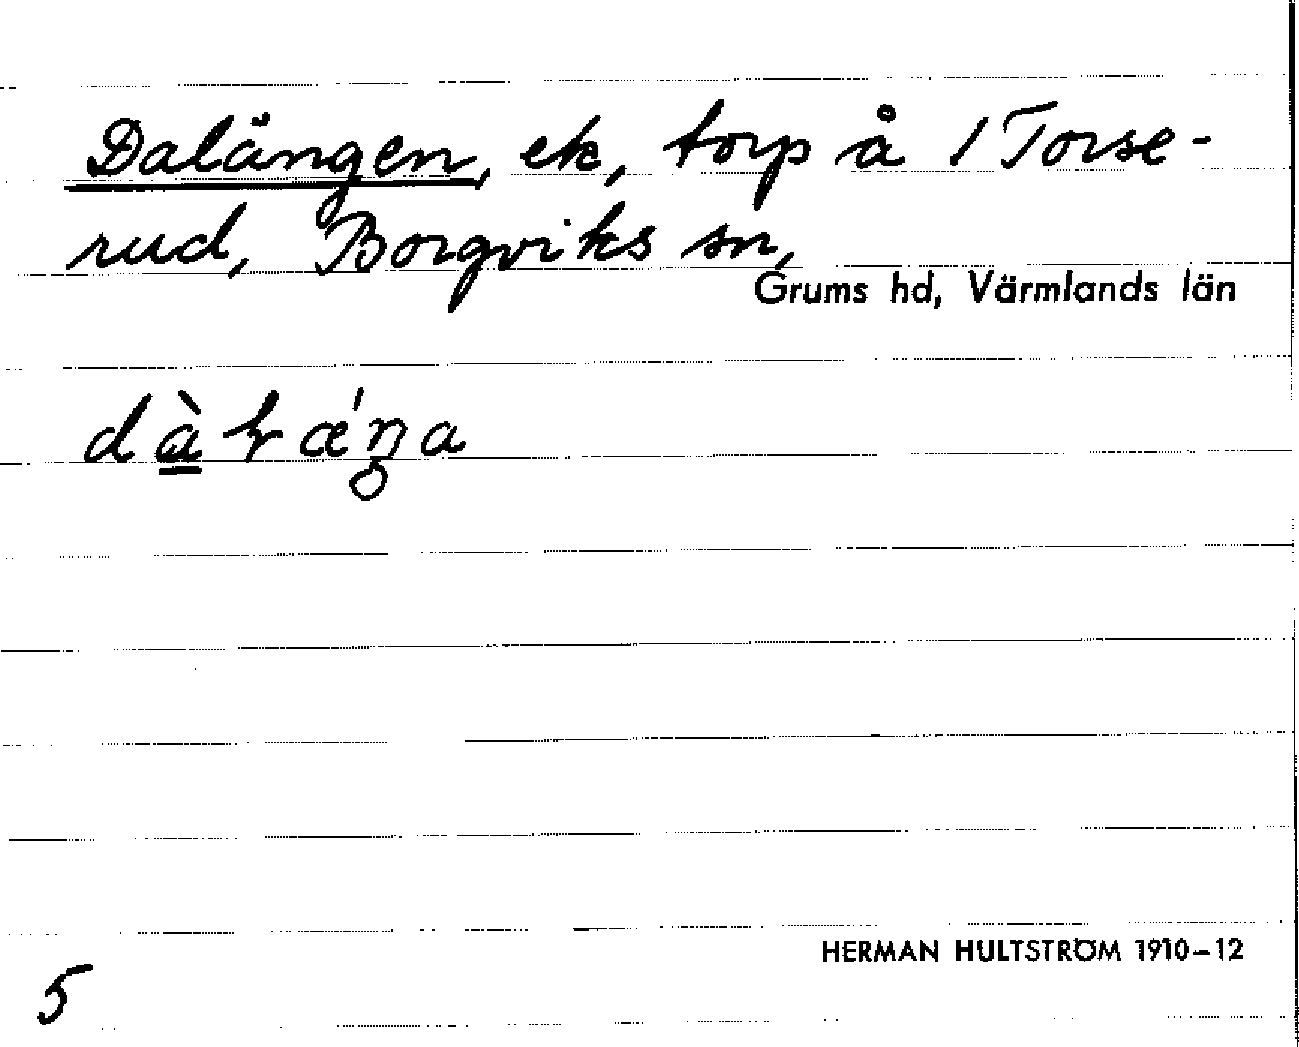 Dalängen, ek, torp å 1 Torse-
rud, Borgviks sn,
Grums hd, Värmlands län
HERMAN HULTSTRÖM 1910–12
5